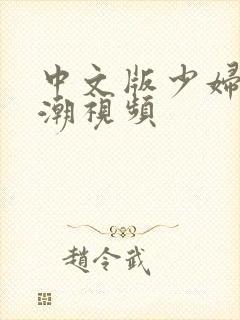 中文版少婦
潮視頻
趙令武